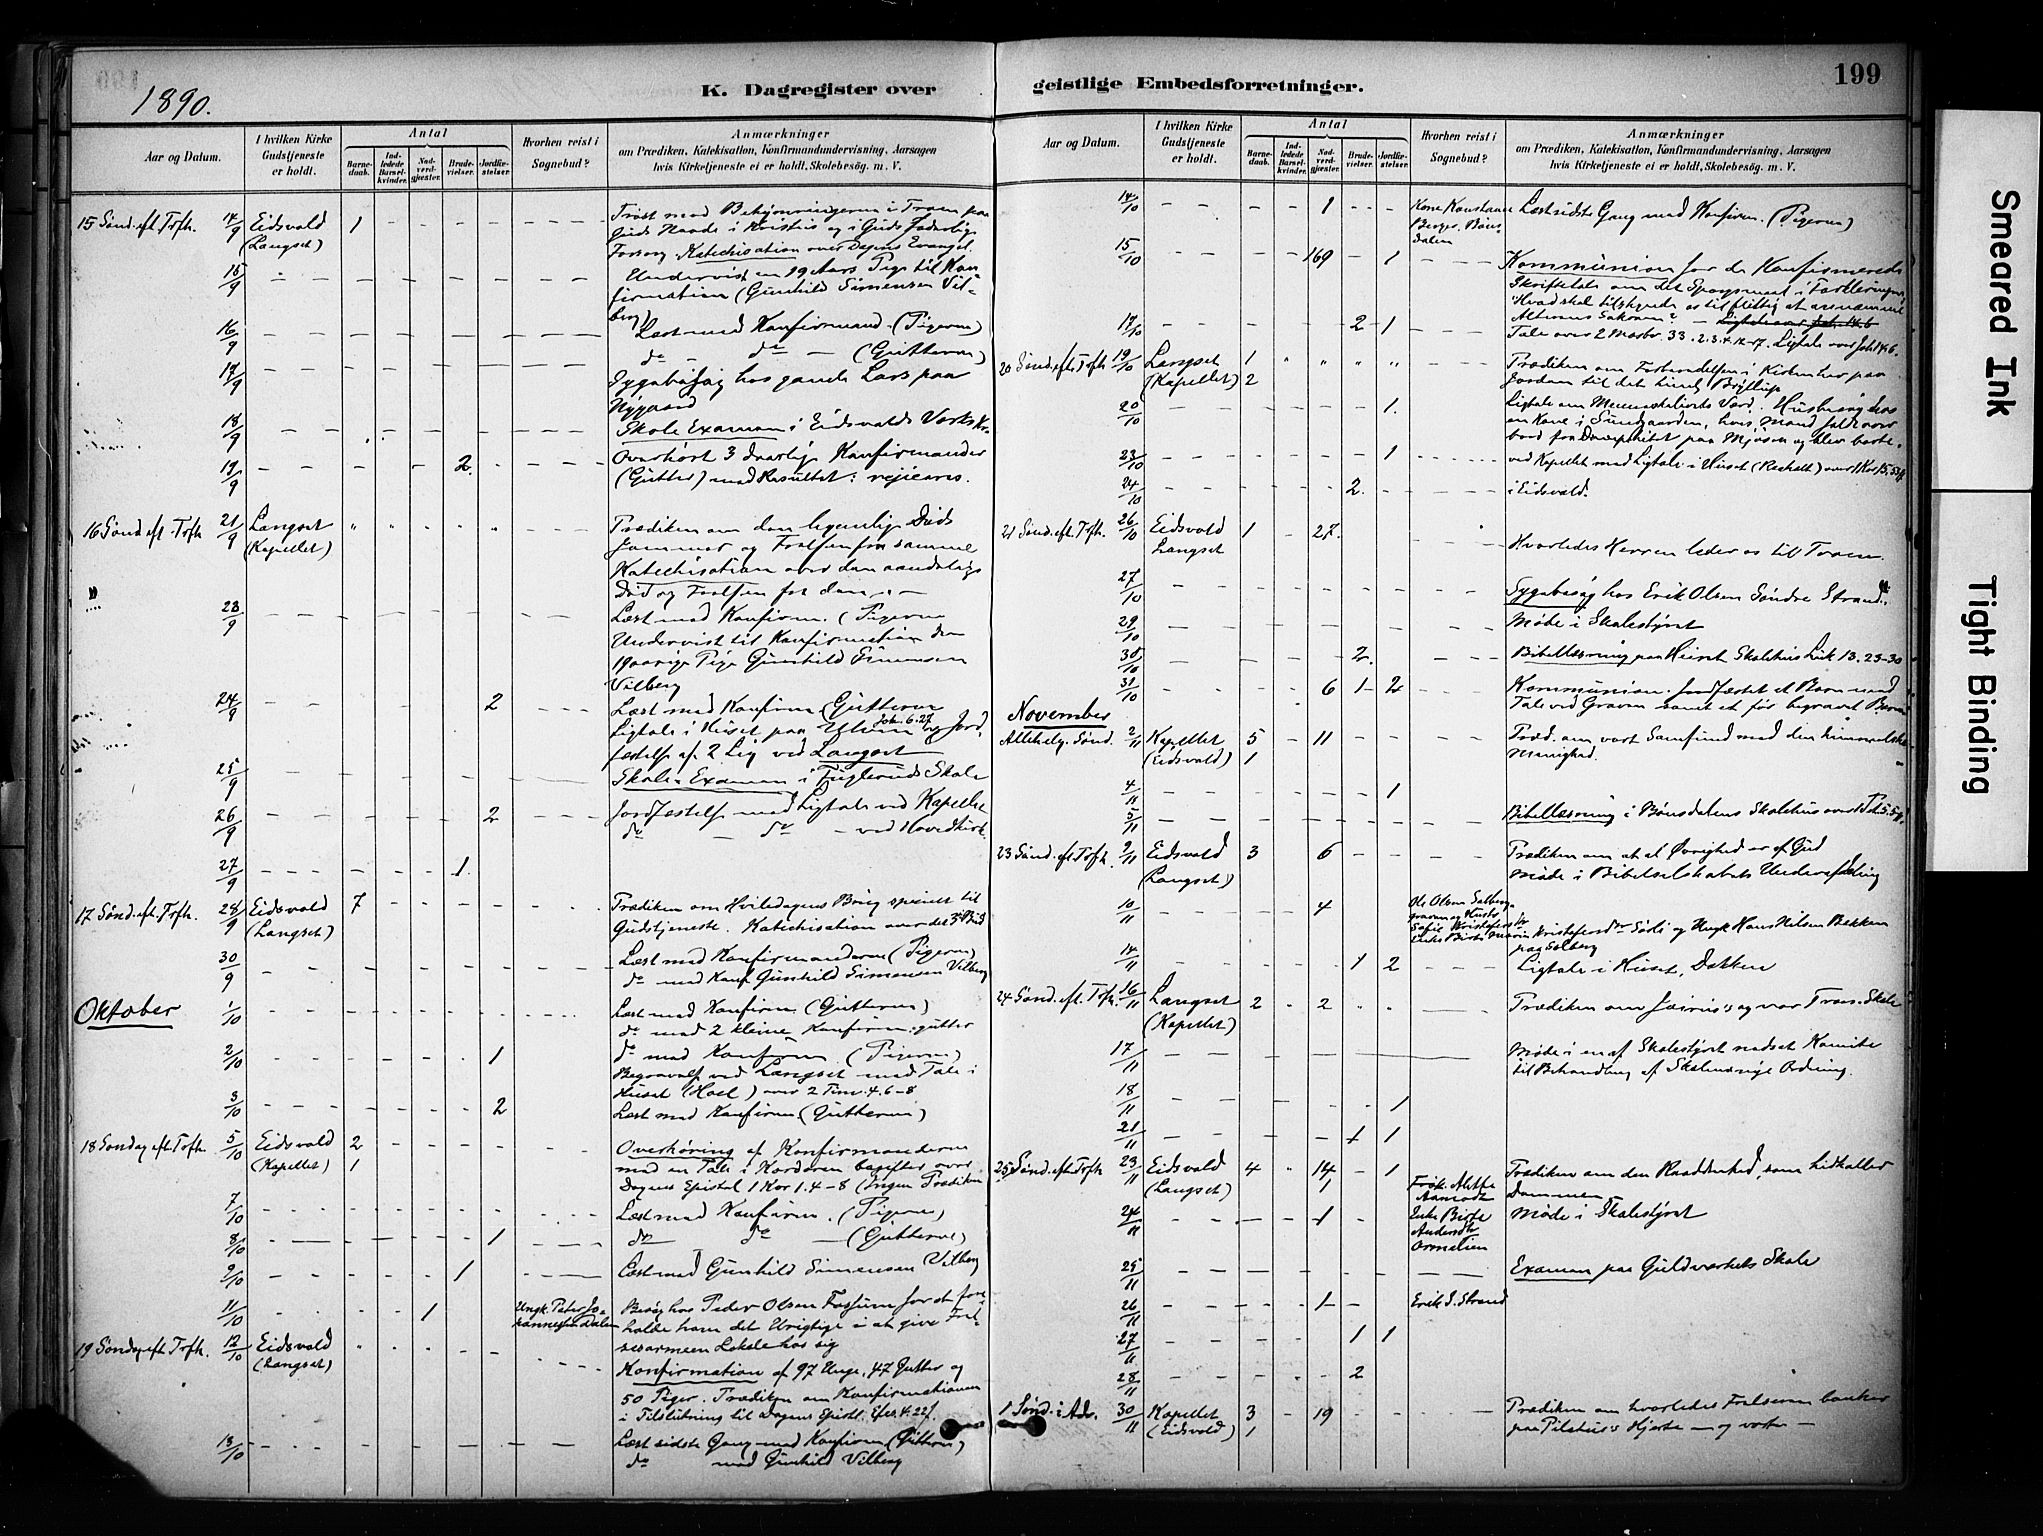 199
1890.
K. Dagregister over
geistlige Embedsforretninger.
Aar og Datum.
I hvilken Kirke Gudstjeneste er holdt.
Antal
Barnedaab.
Indledede Barselkvinder.
Nadverdgjæster.
Brudevielser.
Jordfæstelser.
Hvorhen reist i Sognebud?
Anmærkninger
om Prædiken, Katekisation, Konfirmandundervisning, Aarsagen
hvis Kirketjeneste ei er holdt, Skolebesøg. m. V.
15 Sønd. eft. Trfh. 14/9 Eidsvold 1 - - - - Trøst mod Bekymringerne i Troen paa
(Langset) Guds Naade i Kristus og i Guds faderlige
Forsorg. Katechisation over Dagens Evangel.
15/9 Undervist en 19 Aars Pige til Kon-
firmation (Gunhild Simensen Vil-
berg)
16/9 Læst med Konfirmand. (Pigerne)
17/9 do - do - (Gutterne)
Sygebesøg hos gamle Lars paa
Nygaard
18/9 Skole Examen i Eidsvolds Værks Kr.
19/9 2. Overhørt 3 daarlige Konfirmander
(Gutter) med Resultet: rejiceres.
16 Sønd. eft. Trfh. 21/9 Langset Prædiken om den legemlige Døds
(Kapellet) Jammer og Frelsen fra samme
Katechisation over den aandelige
Død og Frelsen fra den. -
23/9 Læst med Konfirm. (Pigerne
Undervist til Konfirmation den
19 aarige Pige Gunhild Simensen
Vilberg
24/9 2 Læst med Konfirm (Gutterne
Ligtale i Huset paa Joh. 6.27 og Jord,
fæstelse af 2 Lig ved Langset
25/9 Skole-Examen i Fuglerud Skole
26/9 2 Jordfæstelse med Ligtale ved Kapellet
do - do - ved Hovedkirk.
27/9 1.
17 Sønd. eft. Trfh. 28/9 Eidsvold 7 Prædiken om Hviledagens Brug specielt til
(Langset) Gudstjeneste. Katechisation over det 3die Bud
30/9 Læst med Konfirmanderne (Pigerne)
do med Konf. Gunhild Simensen Vilberg
Oktober 1/10 Læst med Konfirm. (Gutterne)
do med 2 kleine Konfirm. gutter
2/10 1 do med Konfirm (Pigerne)
Begravelse ved Langset med Tale i
Huset (Hoel) over 2 Tim. 4.6-8
3/10 2 Læst med Konfirm (Gutterne)
18 Søndag eft. Trfh. 5/10 Eidsvold 2 Overhøring af Konfirmanderne
(Kapellet) 1 med en Tale i Kordøren bagefter over
Dagens Epistel 1 Kor 1. 4-8 (Ingen Prædiken
7/10 Læst med Konfirm. (Pigerne)
8/10 1 do do (Gutterne)
9/10 1 Læst med Gunhild Simensen Vilberg
11/10 1 Ungk. Peter Jo- Besøg hos Peder Olsen Fossum for at fore-
hannessen Dalen holde ham det Urigtige i at give Frel-
sesarmeen Lokale hos sig
19 Søndag eft. Trfh. 12/10 Eidsvold
(Langset) Konfirmation af 97 Unge, 47 Gutter og
50 Piger. Prædiken om Konfirmationen
i Tilslutning til Dagens Epistel. Efes. 4. 22 f.
13/10 Læst sidste Gang med Konfirm (Gutterne)
do med Gunhild Vilberg
Aar og Datum.
I hvilken Kirke Gudstjeneste er holdt.
Antal
Barnedaab.
Indledede Barselkvinder.
Nadverdgjæster.
Brudevielser.
Jordfæstelser.
Hvorhen reist i Sognebud?
Anmærkninger
om Prædiken, Katekisation, Konfirmandundervisning, Aarsagen
hvis Kirketjeneste ei er holdt, Skolebesøg. m. V.
14/10 1 Kone Læst sidste Gang med Konfirm. (Pigerne)
15/10 169 1 Kommunion for de Konfirmerede
Skriftetale om det Spørgsmaal i Forklaringen:
Hvad skal tilskynde os til flittig at annamme
Alterens Sakram?
17/10 2 1 Tale over Ligtale over Joh 14.6.
20 Sønd. eft. Trfh. 19/10 Langset 1 Prædiken om Forberedelsen i Kirken her paa
(Kapellet) 2 Jorden til det himl. Bryllup
20/10 1. Ligtale om Menneskelivets Værd. Husbesøg hos
en Kone i Sundgaarden, hvis Mand faldt over
bord fra Dampskibet paa Mjøsen og blev borte.
23/10 1 ved Kapellet med Ligtale i Huset over 1 Kor 15.
24/10 2. i Eidsvold.
21 Sønd. eft. Trfh. 26/10 Eidsvold 1 27.
Langset Hvorledes Herren leder os til Troen.
27/10 Sygebesøg hos Erik Olsen Søndre Strand
29/10 Møde i Skolestyret
30/10 2. Bibellæsning paa Huset Skolehus Luk 13. 23-30
31/10 6 1 2 Kommunion. Jordfæstet et Barn med
Tale ved Graven samt et før begravet Barn
November
Allehelg. Sønd. 2/11 Kapellet 5 11 Præd. om vort Samfund med den himmelske
(Eidsvold) 1 Menighed.
4/11 1
5/11 Bibellæsning i Bønsdalens Skolehus over
23 Sønd. eft Trfh. 9/11 Eidsvold 3 6 Prædiken om at al Øvrighed er af Gud
(Langset) Møde i Bibelselskabets Underafdeling
10/11 4 Ole Olsen
og Ungk Hans Nilsen Bekken
14/11 1 2 Ligtale i Huset,
24 Sønd. eft. Trfh. 16/11 Langset 2 2 Prædiken om Jairus's og vor Troes-Skole
(Kapellet)
17/11 Møde i en af Skolestyret nedsat Komite
til Behandling af Skolevæsenets Ordning.
18/11 1
21/11 1 1
25 Sønd. eft Trfh 23/11 Eidsvold 4 14 1 Prædiken om den Raaddenhed, som hidkalder
(Langset) 1 Frøk. Alette Dommen
Aamodt
24/11 1 Enke Birte Møde i Skolestyret
Andersdtr
Ormelien
25/11 Examen paa Guldverkets Skole
26/11 1 Erik J. Strand
27/11 1 1
28/11 2
1 Sønd. i Adv. 30/11 Kapellet 3 19 Prædiken om hvorledes Frelseren banker
(Eidsvold) 1 paa Pilatus's Hjerte - og vort -
Smeared Ink
Tight Binding